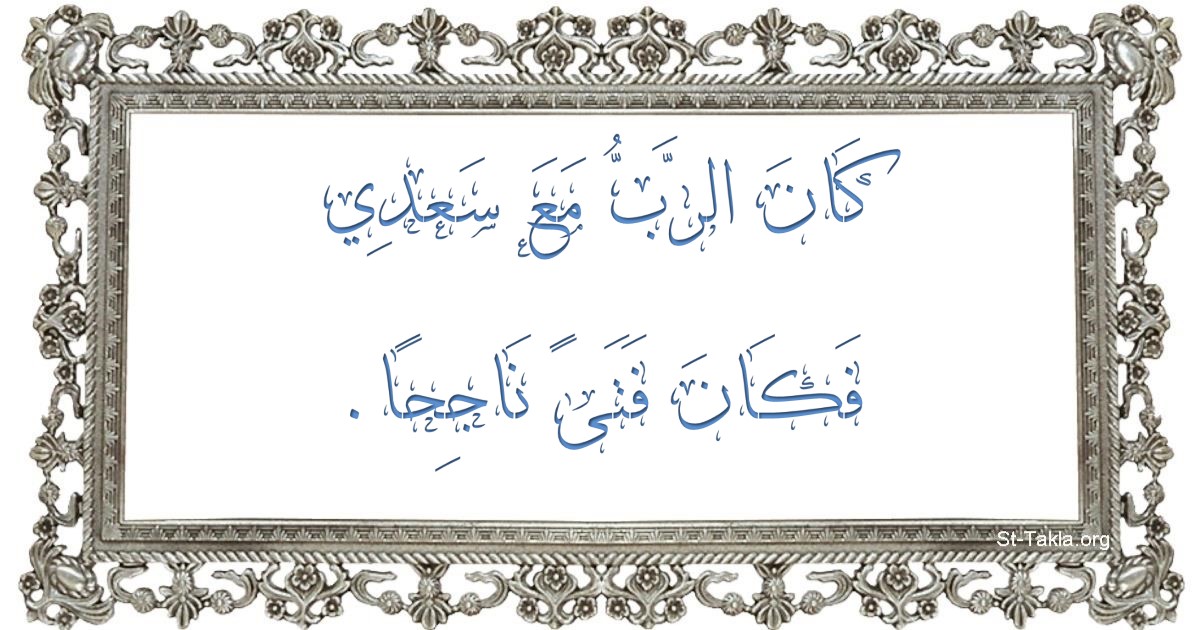 كَانَ الرَّبُّ مَعَ سَعْدِي
فَكَانَ فَتَىً نَاجِحًا.
St-Takla.org